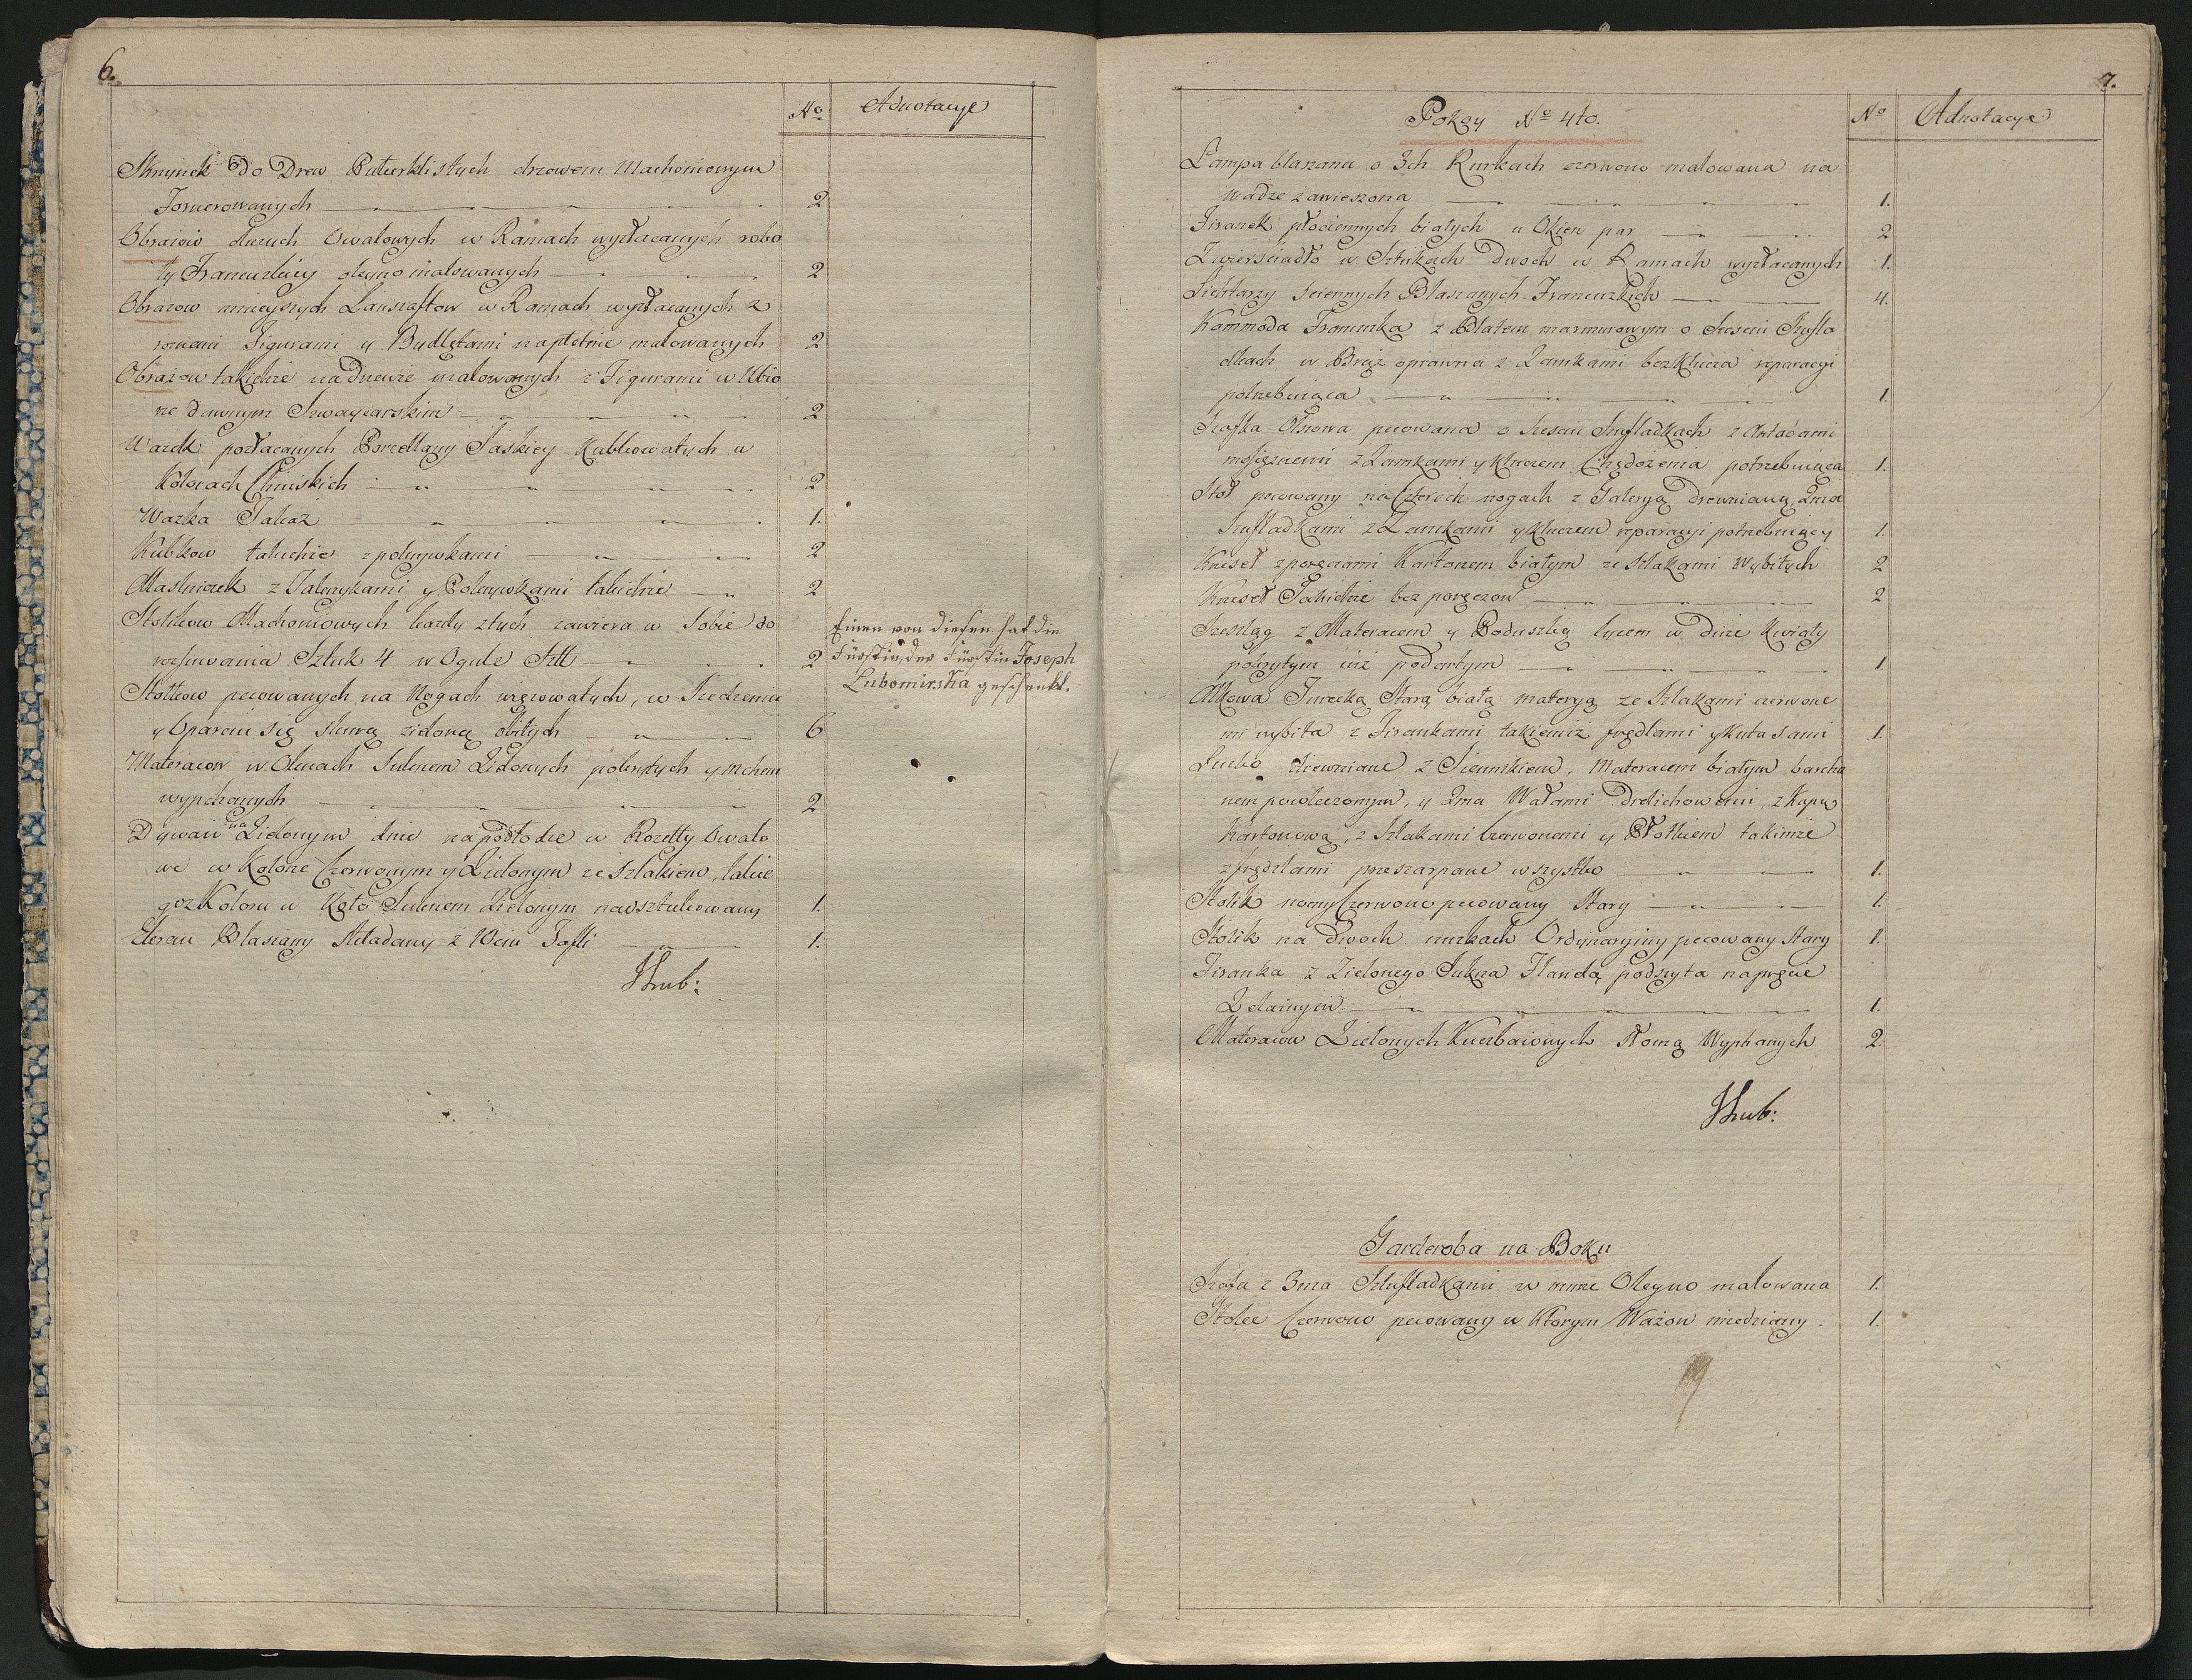 6.
No Adnotacye
Skrzynek do Drew Puterklistych drzewem Machoniowym
Fornerowanych 2
Obrazow dwuch Owalowych w Ramach wyzłacanych robo
ty Francuzkiey oleyno malowanych 2
Obrazow mnieyszych Lanszaftow w Ramach wyzłacanych z
roznemi Figurami y Bydlętami na płotnie malowanych 2
Obrazow takichze na Drzewie malowanych z Figurami w Ubio
rze dawnym Szwaycarskim 2
Wazek pozłacanych Porcellany Saskiey Kubkowatych w
Kolorach Chinskich 2
Wazka Takaz 1.
Kubkow takichze z pokrywkami 2
Maslniczek z Talerzykami y Pokrywkami takichze 2
Stolikow Machoniowych kazdy z tych zawiera w Sobie do
rozsuwania Sztuk 4 w Ogule Sztt 2
Einen von diesen hat die
Fürstin, der Fürstin Joseph
Lubomirska geschenkt.
Stołkow pecowanych na Nogach węzowatych, w Siedzeniu
y Oparciu się skurą zieloną obitych 6
Materacow w Oknach Suknem Zielonych pokrytych y mchem
wypchanych 2
Dywan na Zielonym dnie na podłodze w Rozetty Owalo
we w Kolorze Czerwonym y Zielonym ze szlakiem, takie
goz Koloru w Koło Suknem Zielonym nadsztukowany 1.
Ekran Blaszany składany z 10ciu Tafli 1.
Hrub:
7.
Pokoy No 4to.
No Adnotacye
Lampa blaszana o 3ch Rurkach czerwono malowana na
wadze zawieszona 1.
Firanek płociennych białych u Okien par 2
Zwierściadło w Sztukach Dwoch w Ramach wyzłacanych 1.
Lichtarzy sciennych Blaszanych Francuzkich 4.
Kommoda Francuzka z Blatem marmurowym o Szesciu Szufla
dkach w Brąz oprawna z Zamkami bez Klucza reparacyi
potrzebuiąca 1.
Szafka Olszowa pecowana o Szesciu Szufladkach z Antabami
mosięznemi z Zamkami y Kluczem Chędożenia potrzebuiąca 1.
Stoł pecowany na Czterech nogach z Galeryą Drewnianą 2ma
Szufladkami z Zamkami y Kluczem reparacyi potrzebuiący 1.
Krzeseł z poręczami Kartonem białym ze szlakami wybitych 2
Krzeseł Takichze bez poręczow 2
Szeszląg z Materacem y Poduszką cycem w duze Kwiaty
pokrytym iuż podartym 1.
Alkowa Turecką Starą białą materyą ze Szlakami czerwone
mi wybita z Firankami takiemiż frędlami y kutasami 1.
Łuzko drewniane z Siennikiem, Materacem białym barcha
nem powleczonym, y 2ma Wałami Drelichowemi, z Kapą
Kartonową, z Szlakami Czerwonemi y Płotkiem takimze
z frędzlami poszarpane wszystko 1.
Stolik nocny Czerwono pecowany Stary 1.
Stolik na Dwoch nuzkach Ordynaryiny pecowany Stary 1.
Firanka z Zielonego Sukna Flandą podszyta na pręcie
Zelaznym 1.
Materacow Zielonych Kuczbaiowych Słomą Wypchanych 2.
Hrub:
Garderoba na Boku
Szafa z 3ma Szufladkami w murze Oleyno malowana 1.
Stolec Czerwono pecowany w Ktorym Wazon miedziany 1.